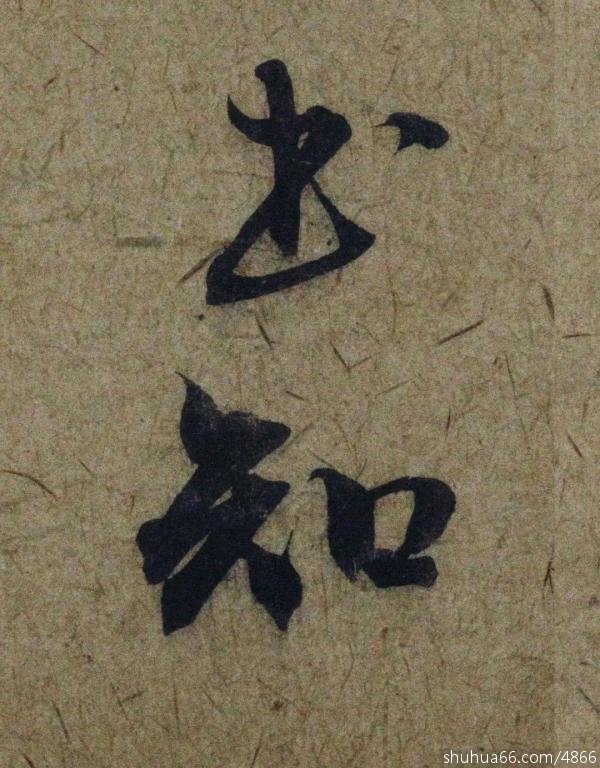 求知
shuhua66.com/4866